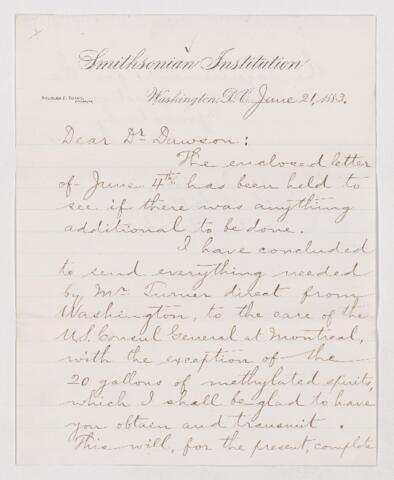 Smithsonian Institution
Washington, D.C. June 21, 1883.
Dear Dr Dawson:
The enclosed letter
of June 4th has been held to
see if there was anything
additional to be done.
I have concluded
to send everything needed
by Mr Turner direct from
Washington, to the care of the
U.S. Consul General at Montreal,
with the exception of the
20 gallons of methylated spirits,
which I shall be glad to have
you obtain and transmit.
This will, for the present, complete